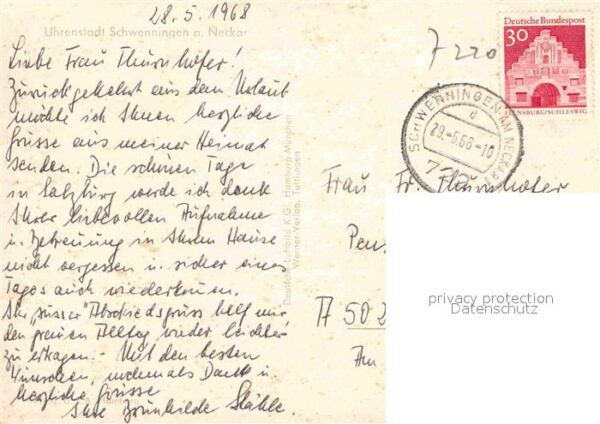 28.5.1968
Uhrenstadt Schwenningen a. Neckar
Liebe Frau Thurnhofer!
Zurückgekehrt aus dem Urlaub
möchte ich Ihnen herzliche
Grüsse aus meiner Heimat
senden. Die schönen Tage
in Salzburg werde ich dank
Ihrer liebevollen Aufnahme
u. Betreuung in Ihrem Hause
nicht vergessen u. sicher eines
Tages auch wiederkommen.
Ihr "süsser" Abschiedsgruss half mir
den grauen Alltag wieder leichter
zu ertragen. - Mit den besten
Wünschen, nochmals Dank u.
herzliche Grüsse
Ihre Brünhilde Stähle.
Deutsche Luftbild K.G., Hamburg-München
Werner-Verlag, Tuttlingen
7220
Deutsche Bundespost
30
FLENSBURG/SCHLESWIG
SCHWENNINGEN AM NECKAR
d
29.-5.68-10
Frau Fr. Thurnhofer
Pen
A 502
Am
privacy protection
Datenschutz